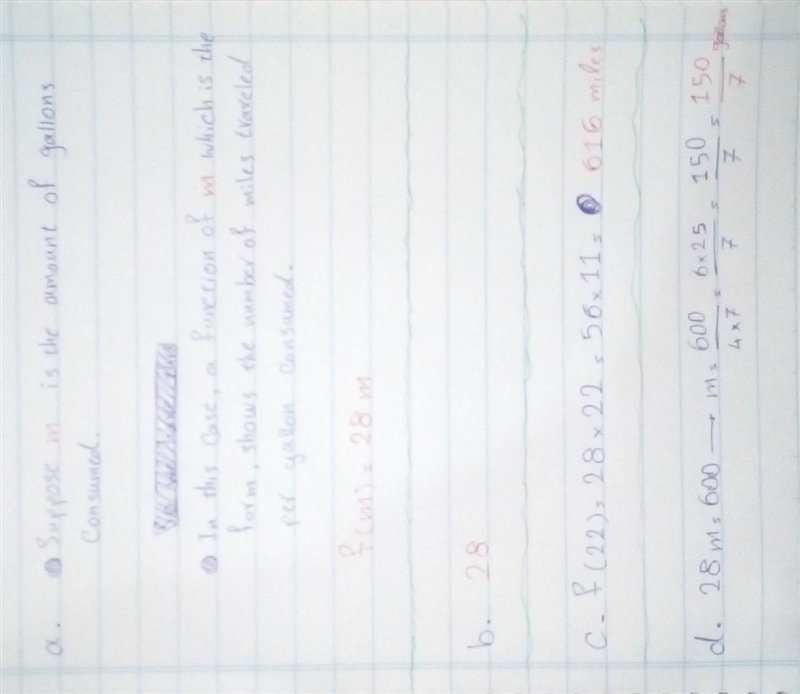 a. Suppose m is the amount of gallons
consumed.
In this case, a function of m which is the
form, shows the number of miles traveled
per gallon consumed.
f(m) = 28 m
b. 28
c. f(22) = 28 × 22 = 56 × 11 = 616 miles
d. 28 m = 600 → m = 600 / 4×7 = 6×25 / 7 = 150 / 7 = 150 / 7 gallons